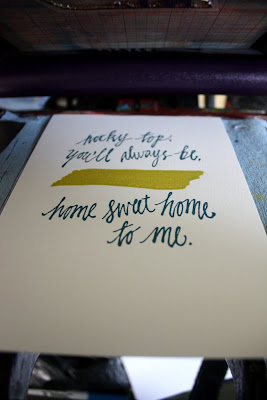 rocky top.
you'll always be.
home sweet home
to me.